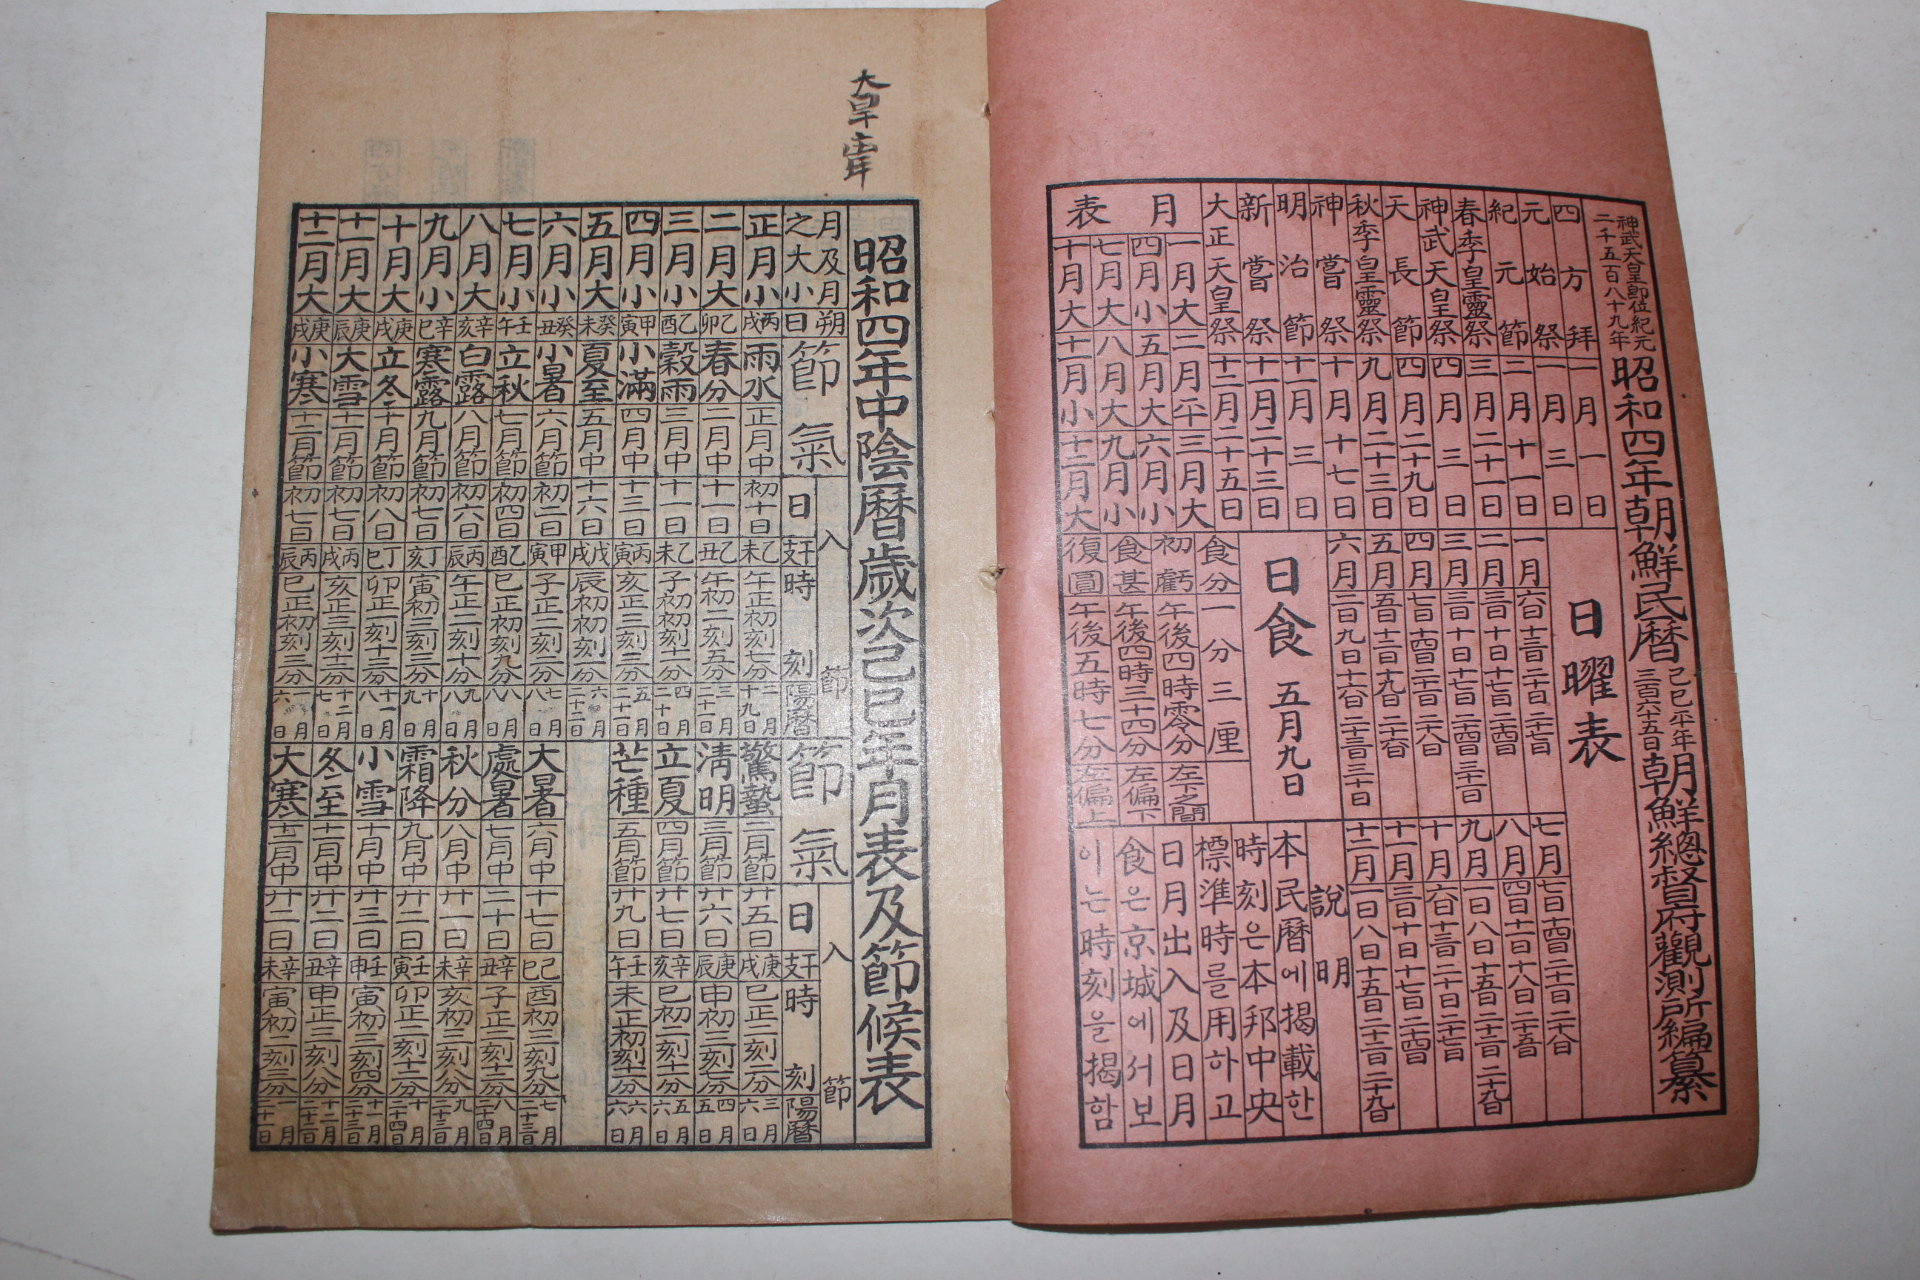 神武天皇即位紀元
二千五百八十九年
昭和四年朝鮮民曆
己巳平年
三百六十五日
朝鮮總督府觀測所編纂
四方拜 一月一日
元始祭 一月三日
紀元節 二月十一日
春季皇靈祭 三月二十一日
神武天皇祭 四月三日
天長節 四月二十九日
秋季皇靈祭 九月二十三日
神嘗祭 十月十七日
明治節 十一月三日
新嘗祭 十一月二十三日
大正天皇祭 十二月二十五日
月表
一月大 二月平 三月大
四月小 五月大 六月小
七月大 八月大 九月小
十月大 十一月小 十二月大
日曜表
一月 六日 十三日 二十日 二十七日
二月 三日 十日 十七日 二十四日
三月 三日 十日 十七日 二十四日 三十一日
四月 七日 十四日 二十一日 二十八日
五月 五日 十二日 十九日 二十六日
六月 二日 九日 十六日 二十三日 三十日
七月 七日 十四日 二十一日 二十八日
八月 四日 十一日 十八日 二十五日
九月 一日 八日 十五日 二十二日 二十九日
十月 六日 十三日 二十日 二十七日
十一月 三日 十日 十七日 二十四日
十二月 一日 八日 十五日 二十二日 二十九日
日食 五月九日
食分 一分三厘
初虧 午後四時零分 左下之間
食甚 午後四時三十四分 左偏下
復圓 午後五時七分 左偏上
說明
本民曆에揭載한
時刻은本邦中央
標準時를用하고
日月出入及日月
食은京城에서보
이는時刻을揭함
昭和四年中陰曆歲次己巳年月表及節候表
月及月之大小 朔日 節氣 入節 日 干支 時刻 陽曆 節氣 入節 日 干支 時刻 陽曆
正月小 丙戌 雨水 正月中 初十日 乙未 午正初刻七分 二月十九日 驚蟄 二月節 廿五日 庚戌 巳正二刻二分 三月六日
二月大 乙卯 春分 二月中 十一日 乙丑 午初二刻五分 三月二十一日 淸明 三月節 廿六日 庚辰 申初三刻七分 四月五日
三月小 乙酉 穀雨 三月中 十一日 乙未 子初初刻十一分 四月二十日 立夏 四月節 廿七日 辛亥 巳初二刻十分 五月六日
四月小 甲寅 小滿 四月中 十三日 丙寅 亥正三刻三分 五月二十一日 芒種 五月節 廿九日 壬午 未正初刻十一分 六月六日
五月大 癸未 夏至 五月中 十六日 戊戌 辰初初刻一分 六月二十二日
六月小 癸丑 小暑 六月節 初二日 甲寅 子正二刻二分 七月八日 大暑 六月中 十七日 己巳 酉初三刻九分 七月二十三日
七月小 壬午 立秋 七月節 初四日 乙酉 巳正初刻九分 八月八日 處暑 七月中 二十日 辛丑 子正二刻十二分 八月二十四日
八月大 辛亥 白露 八月節 初六日 丙辰 午正二刻十分 九月八日 秋分 八月中 廿一日 辛未 亥初二刻八分 九月二十三日
九月小 辛巳 寒露 九月節 初七日 丁亥 寅初三刻三分 十月九日 霜降 九月中 廿二日 壬寅 卯正二刻十二分 十月二十四日
十月大 庚戌 立冬 十月節 初八日 丁巳 卯正一刻十三分 十一月八日 小雪 十月中 廿三日 壬申 寅初三刻四分 十一月二十三日
十一月大 庚辰 大雪 十一月節 初七日 丙戌 亥正三刻十二分 十二月七日 冬至 十一月中 廿二日 辛丑 申正三刻八分 十二月二十二日
十二月大 庚戌 小寒 十二月節 初七日 丙辰 巳正初刻三分 一月六日 大寒 十二月中 廿二日 辛未 寅初二刻三分 一月二十一日